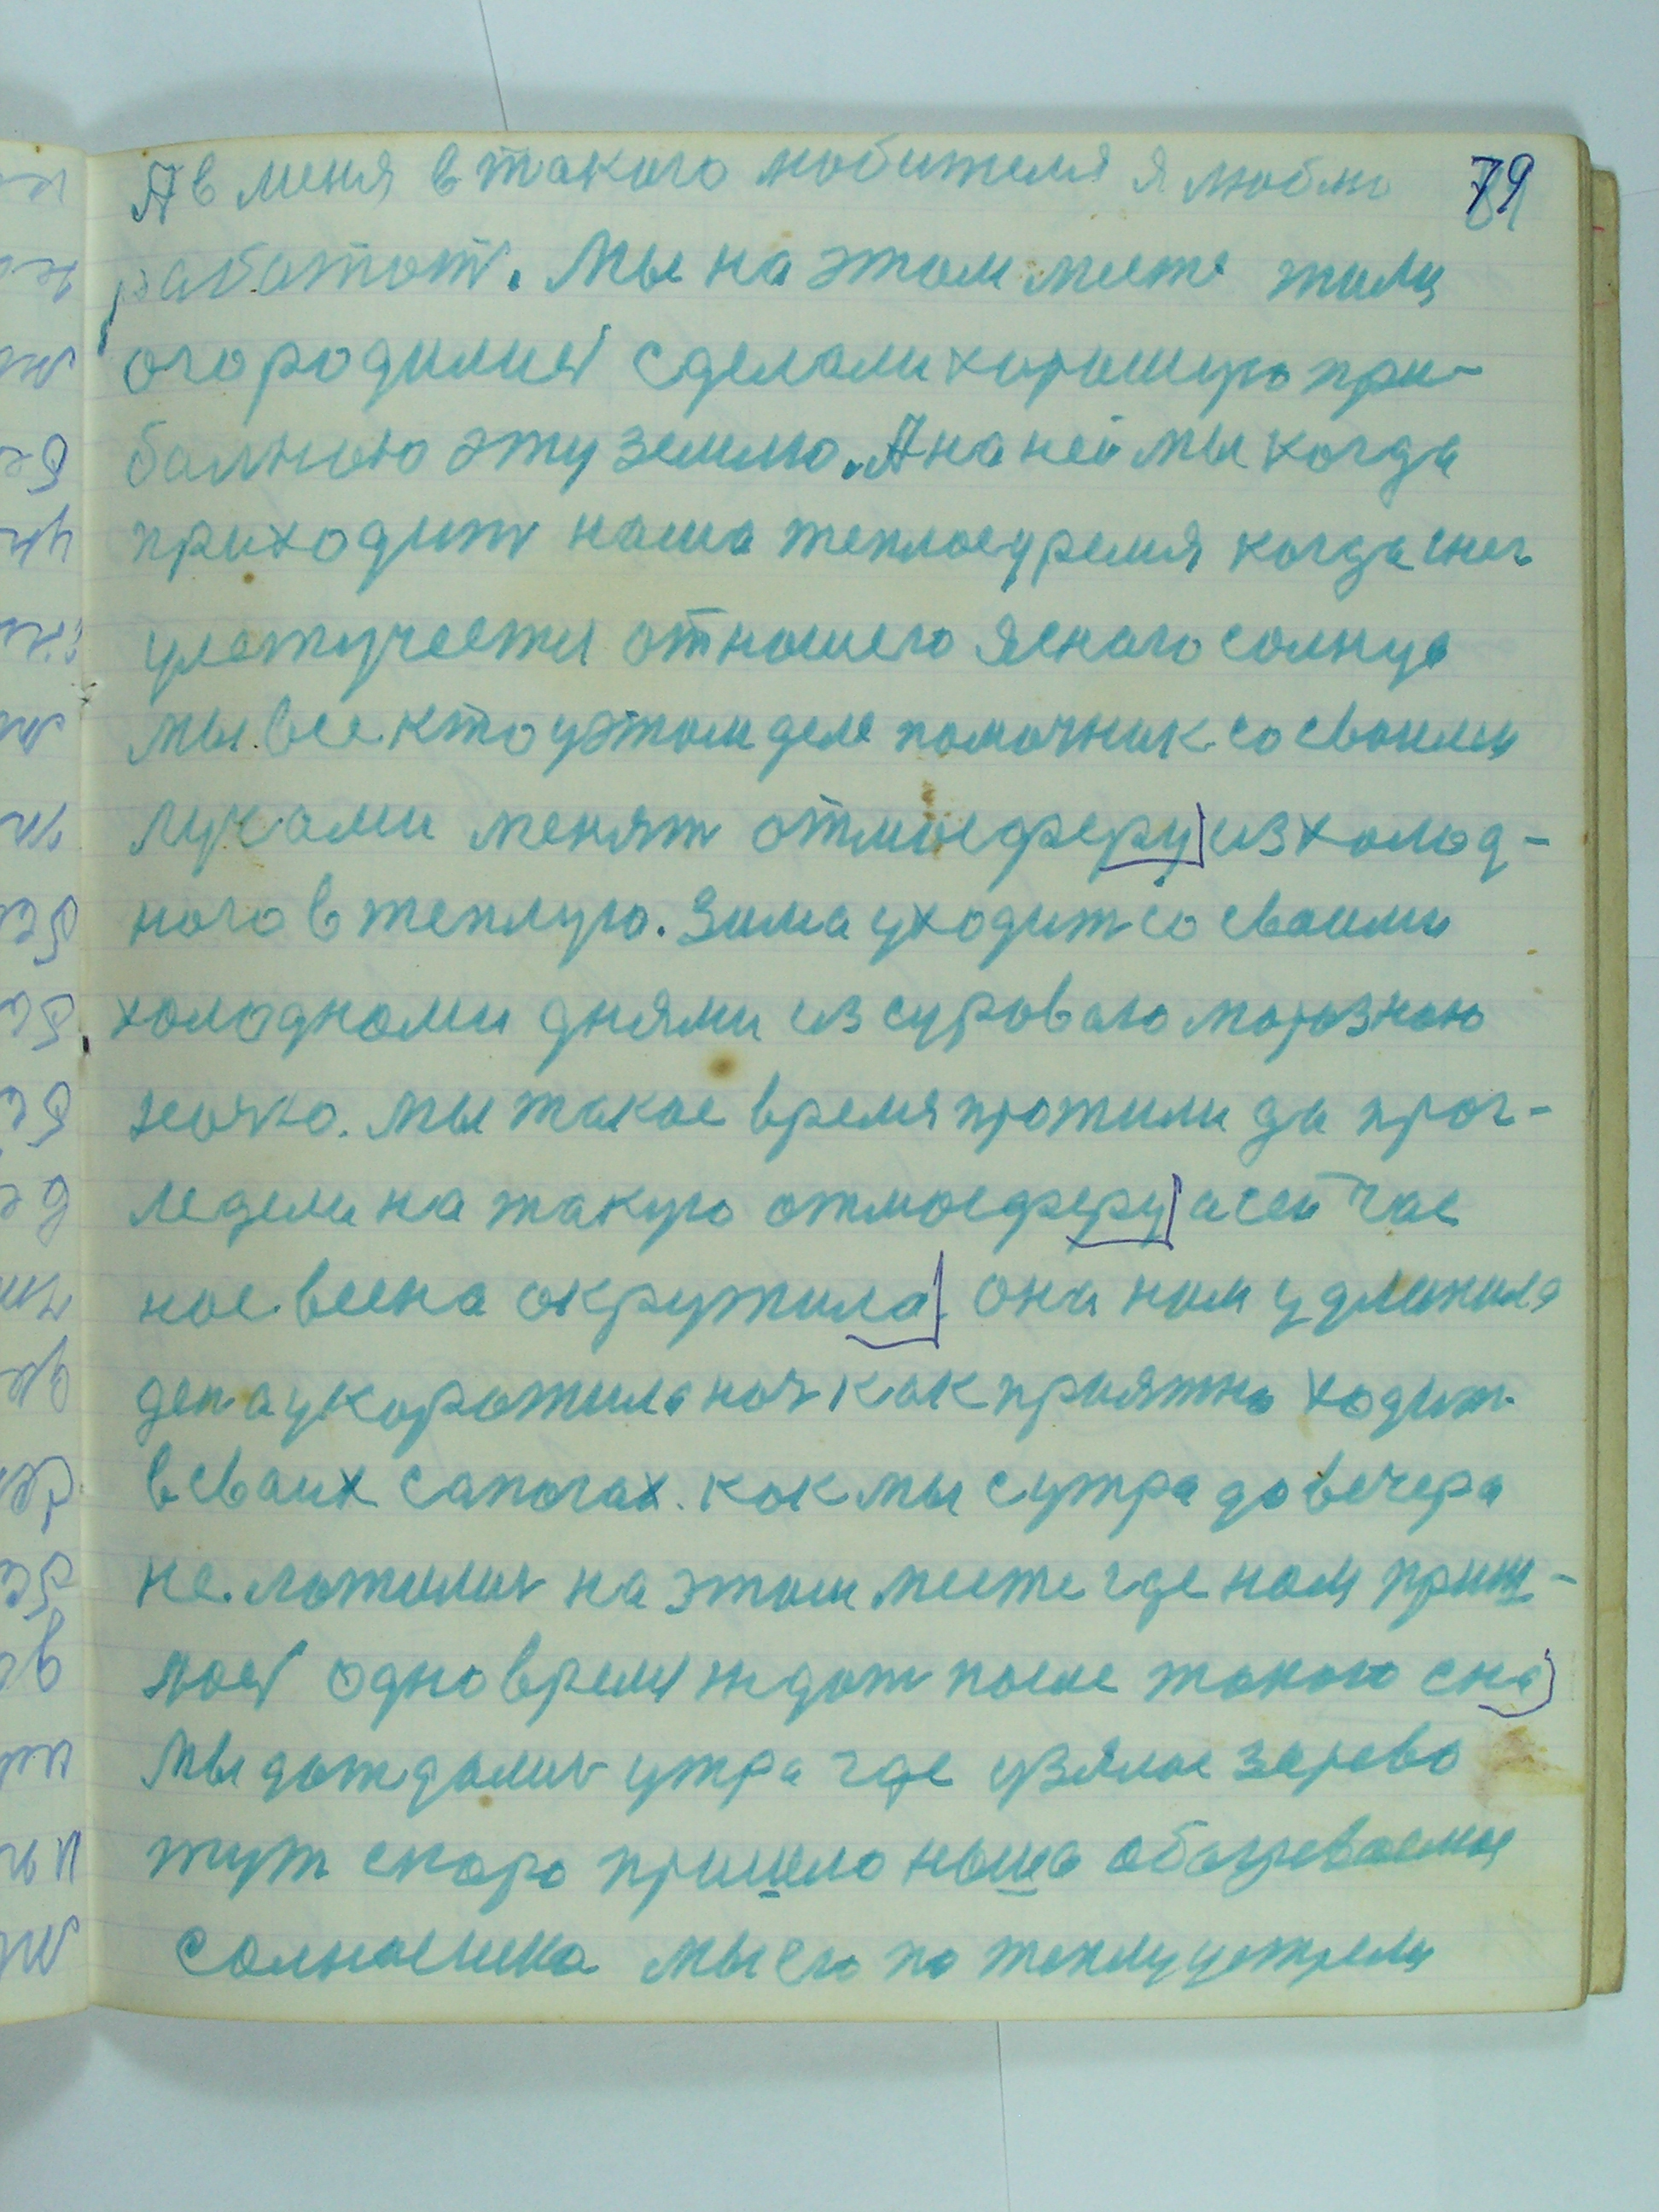 А в меня в такого любителя я люблю 79
работат. Мы на этом месте жили
огородились сделали хорошую при-
бальную эту землю. А на ней мы когда
приходит наша теплое уремя когда снег
улетучестя от нашего ясного солнца
мы все кто у этом деле помочник со своими
луками менят отмосферу из холод-
ного в теплую. Зима уходит со своими
холодноми днями из суровою морозною
ночко. мы такое время прожили да прог-
ледели на такую отмосферу а сейчас
нас весна окружила она нам удлинила
ден а укоротила ноч как приятно ходит
в своих сапогах. как мы с утра до вечера
не ложились на этом месте где нам приш-
лось одно время ждат после такого сна
мы дождались утра где узялос зарево
тут скоро пришло наша обогреваемое
солнышка мы его по теплу устрели